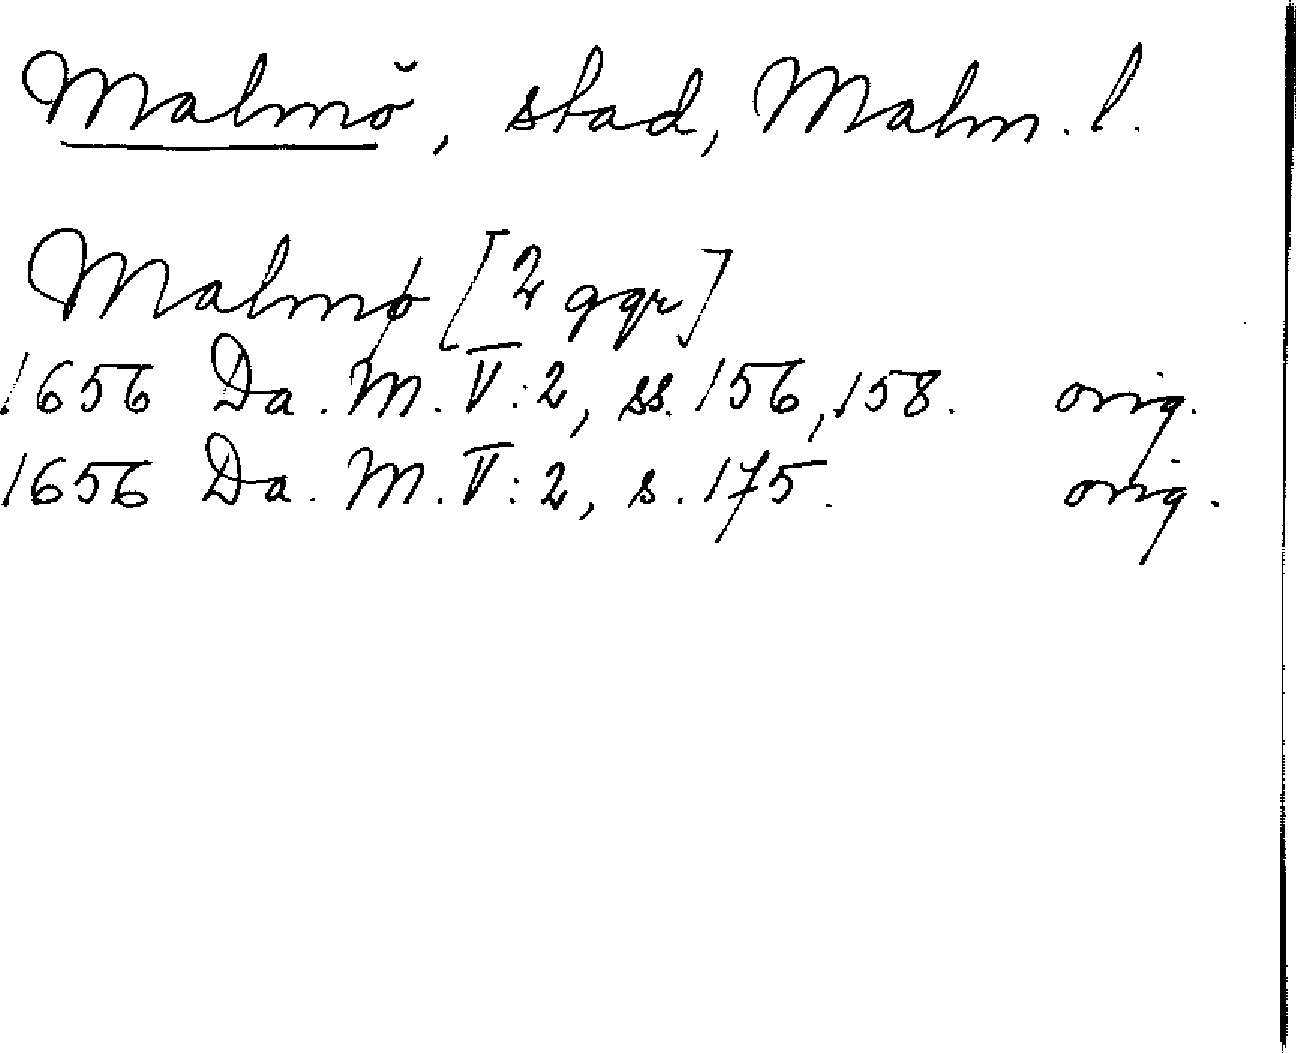 Malmö, stad, Malm. l.
Malmø [2 ggr]
1656 Da. M. V:2, ss. 156, 158. orig.
1656 Da. M. V:2, s. 175. orig.